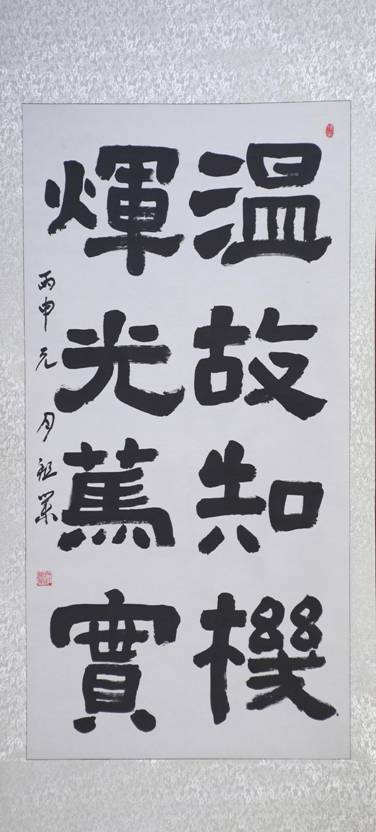 温故知機
煇光篤實
丙申元月祖業